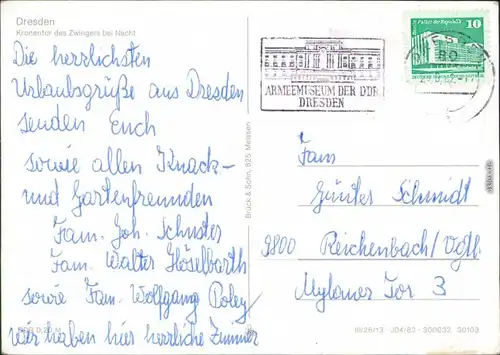 Dresden
Kronentor des Zwingers bei Nacht
Die herrlichsten
Urlaubsgrüße aus Dresden
senden Euch
sowie allen Knack-
und Gartenfreunden
Fam. Joh. Schuster
Fam. Walter Höselbarth
sowie Fam. Wolfgang Poley
wir haben hier herrliche Zimmer
Brück & Sohn, 825 Meissen
ARMEEMUSEUM DER DDR
DRESDEN
10
Fam
Günter Schmidt
9800 Reichenbach/Vgtl.
Mylauer Tor 3